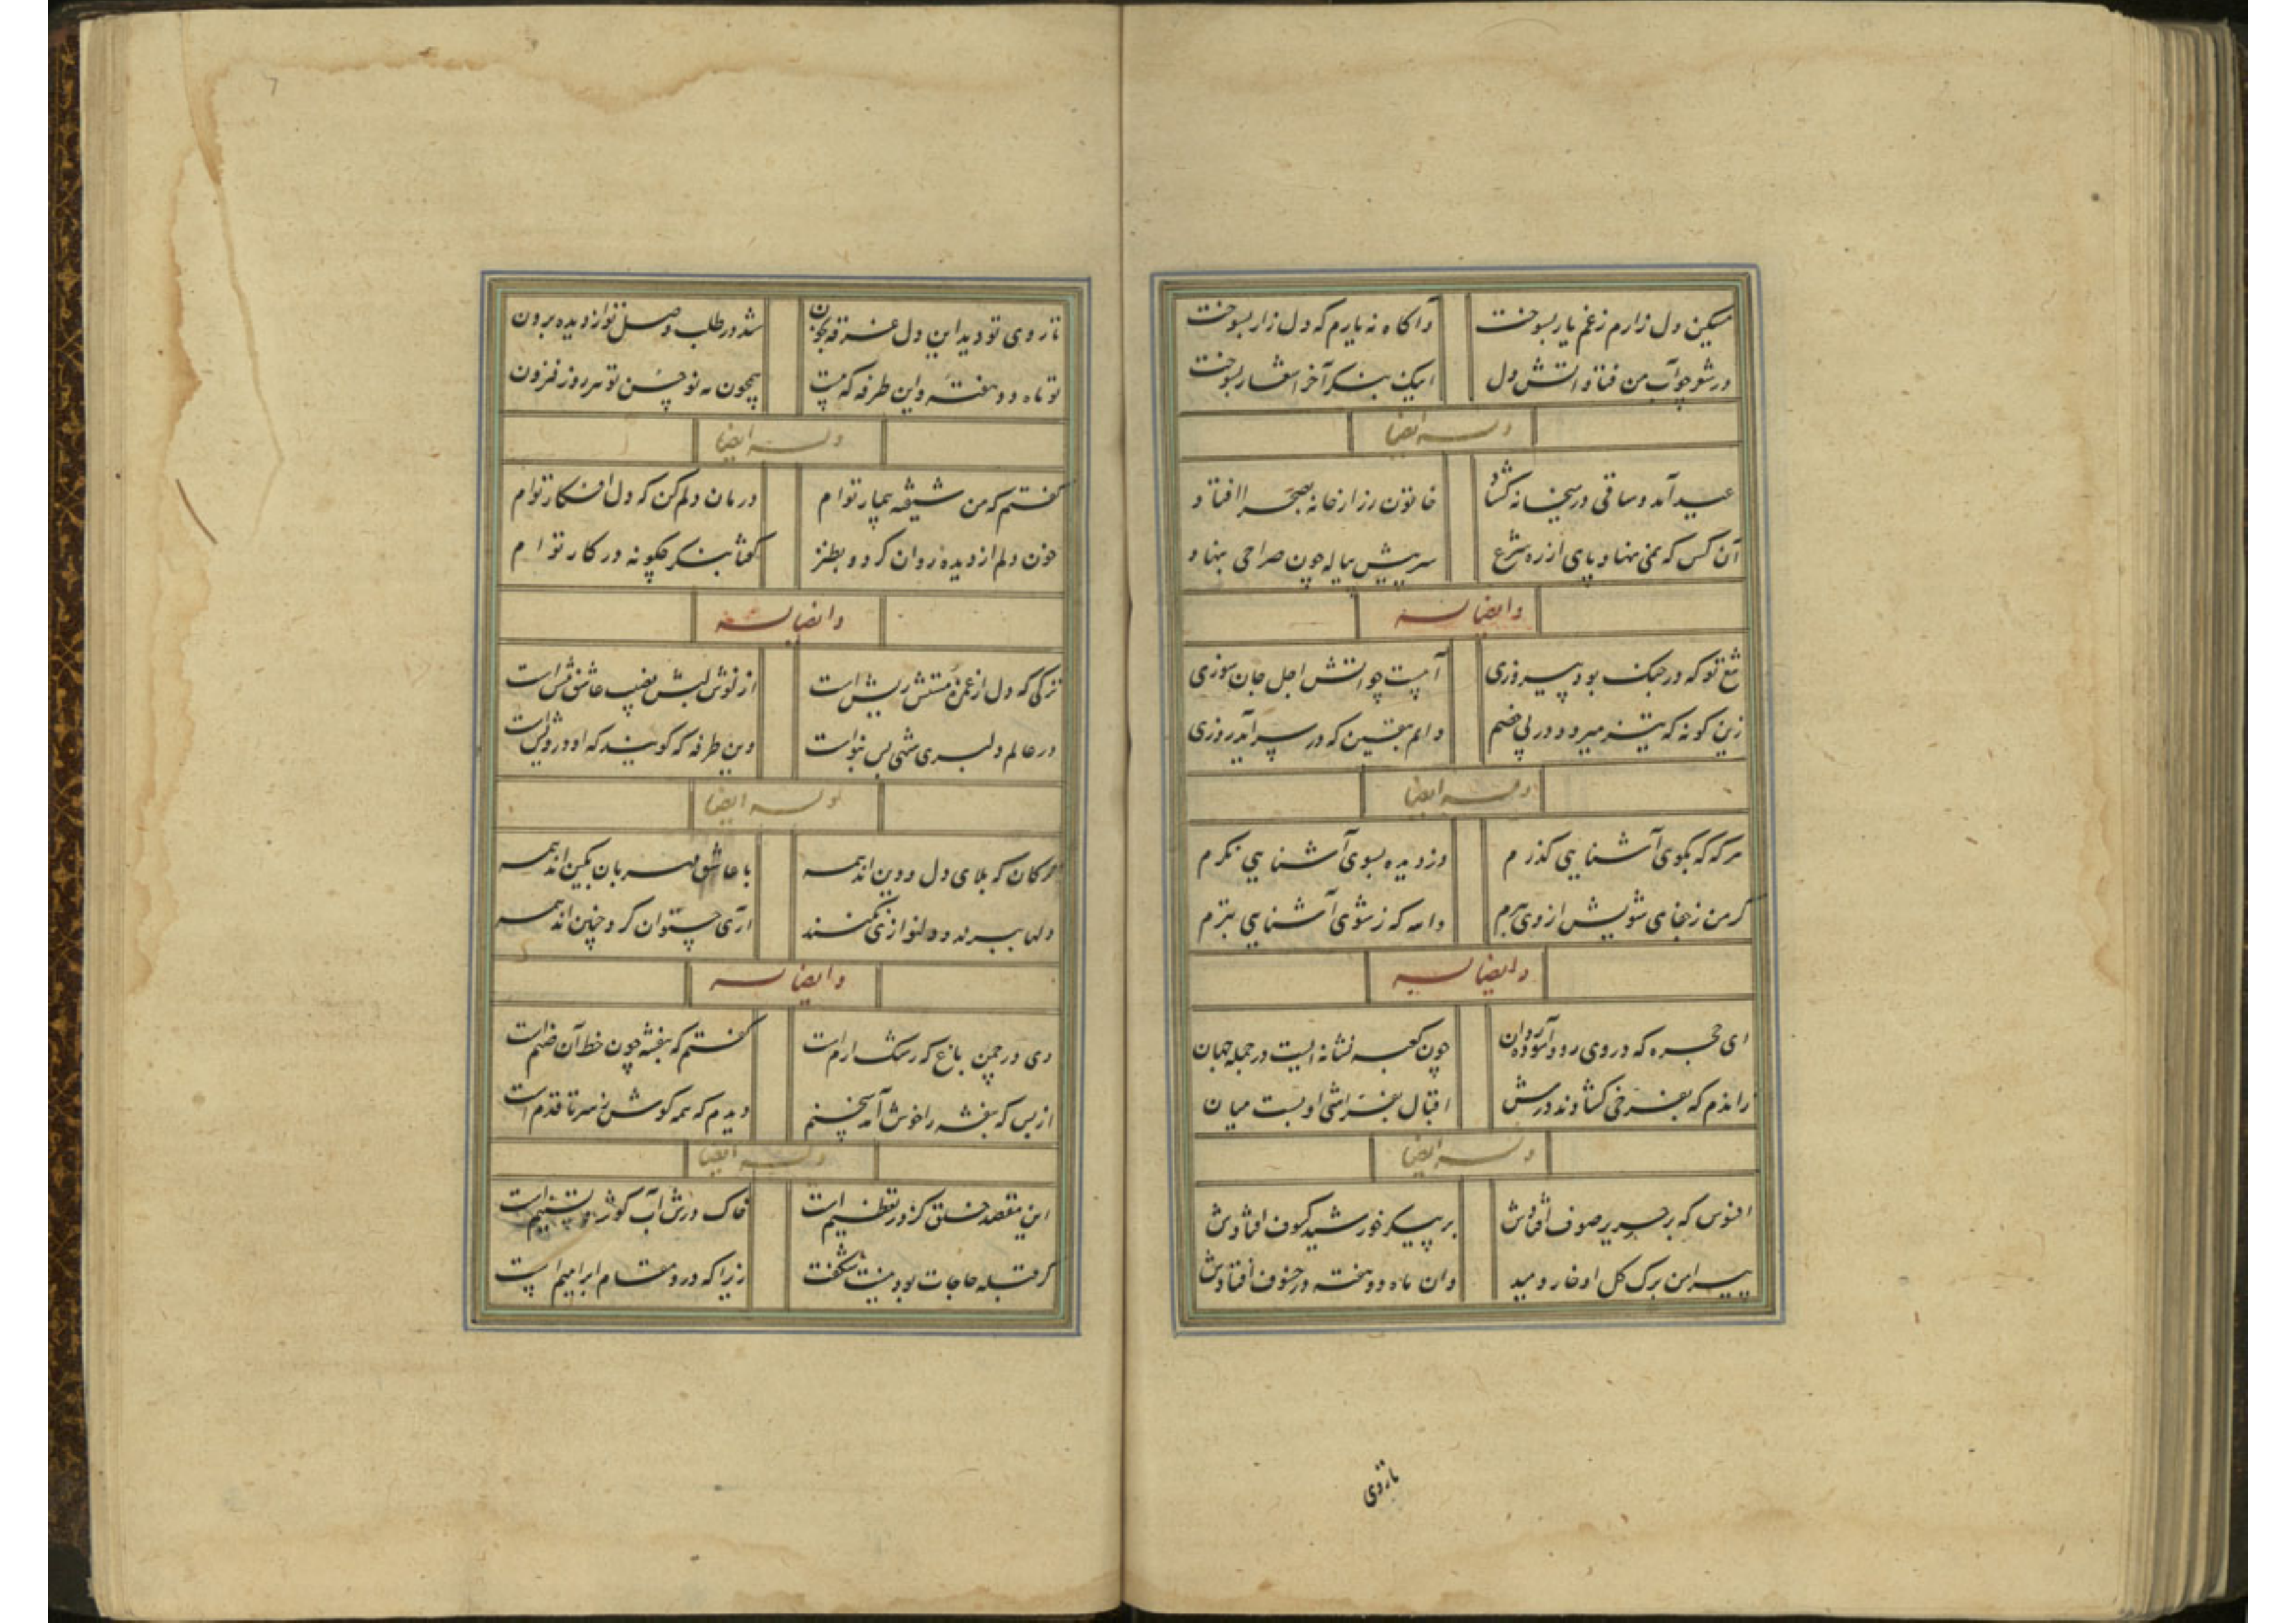 مسکین دل زارم زغم یار بسوخت
و آگاه نه یارم که دل زار بسوخت
در شو چو آب من فتاد آتش دل
اینک بنگر آخر اشعار بسوخت
وله ایضا
عید آمد و ساقی در میخانه گشاد
خاتون رز از خانه بصحرا افتاد
آن کس که نمی نهاد پای از ره شرع
سر پیش پیاله چون صراحی بنهاد
و ایضا له
تیغ تو که در جنک بود پیروزی
آبیست چو آتش اجل جان سوزی
زین کونه که تیز میرود در پی خصم
دانم بیقین که در سر آید روزی
وله ایضا
هر که که بکوی آشنایی کذرم
دزدیده بسوی آشنایی نکرم
کر من زجفای شویش از وی ببرم
والله که زشوی آشنایی بترم
و ایضا له
ای حجره که در وی رود آسوده روان
چون کعبه نشانه ایست در جمله جهان
رانذم که بفرخی کشادند درش
اقبال بفراشی او بست میان
وله ایضا
افسوس که بر حریر صوف افتادش
بر پیکر خورشید کسوف افتادش
پیرامن برک کل او خار دمید
وان ماه دو هفته در خسوف افتادش
تا روی
تا روی تو دید این دل غرقه بخون
شد در طلب وصل تو از دیده برون
تو ماه دو هفته و این طرفه که هست
همچون مه نو حسن تو هر روز فزون
وله ایضا
کفتم که من شیفته بیمار توام
درمان دلم کن که دل افکار توام
خون دلم از دیده روان کرد و بطنز
کفتا بنکر چکونه در کار توام
و ایضا له
ترکی که دل از غمزه مستش ریش است
از نوش لبش نصیب عاشق نیش است
در عالم دلبری شهی بس بنواست
وین طرفه که کویند که او درویش است
وله ایضا
ترکان که بلای دل و دین اند همه
با عاشق مهربان بکین اند همه
دلها ببرند و دلنوازی نکنند
آری چتوان کرد چنین اند همه
و ایضا له
دی در چمن باغ که رشک ارم است
کفتم که بنفشه چون خط آن صنم است
از بس که بنفشه را خوش آمد سخنم
دیدم که همه کوش ز سر تا قدم است
وله ایضا
این مقصد خلق کز در تعظیم است
خاک درش آب کوثر و تسنیم است
کر قبله حاجات بود نیست شکفت
زیرا که درو مقام ابراهیم است